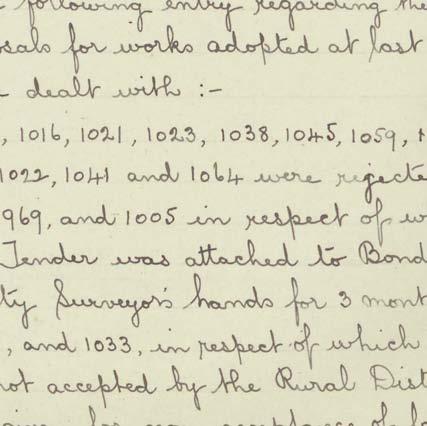 following entry regarding the
osals for works adopted at last
dealt with :-
, 1016, 1021, 1023, 1038, 1045, 1059,
1022, 1041 and 1064 were rejecte
969, and 1005 in respect of w
Tender was attached to Bond
ty Surveyor's hands for 3 mont
, and 1033, in respect of which
not accepted by the Rural Dist